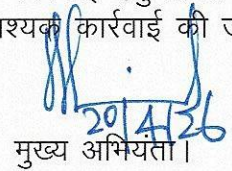 श्यक कार्रवाई की
20/4/26
मुख्य अभियंता।